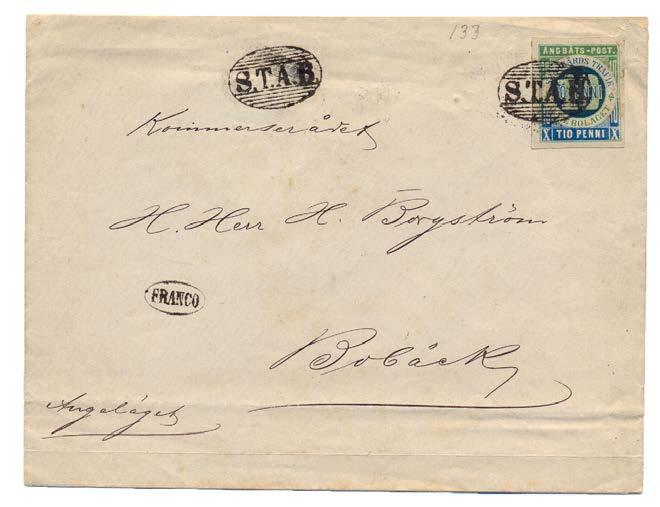 133
S.T.A.B.
ÅNGBÅTS-POST.
GÅRDS TRAFIK
S.T.A.B.
BOLAGET
X TIO PENNI X
Kommerserådet
H. Herr H. Borgström
FRANCO
Bobäck
Angeläget